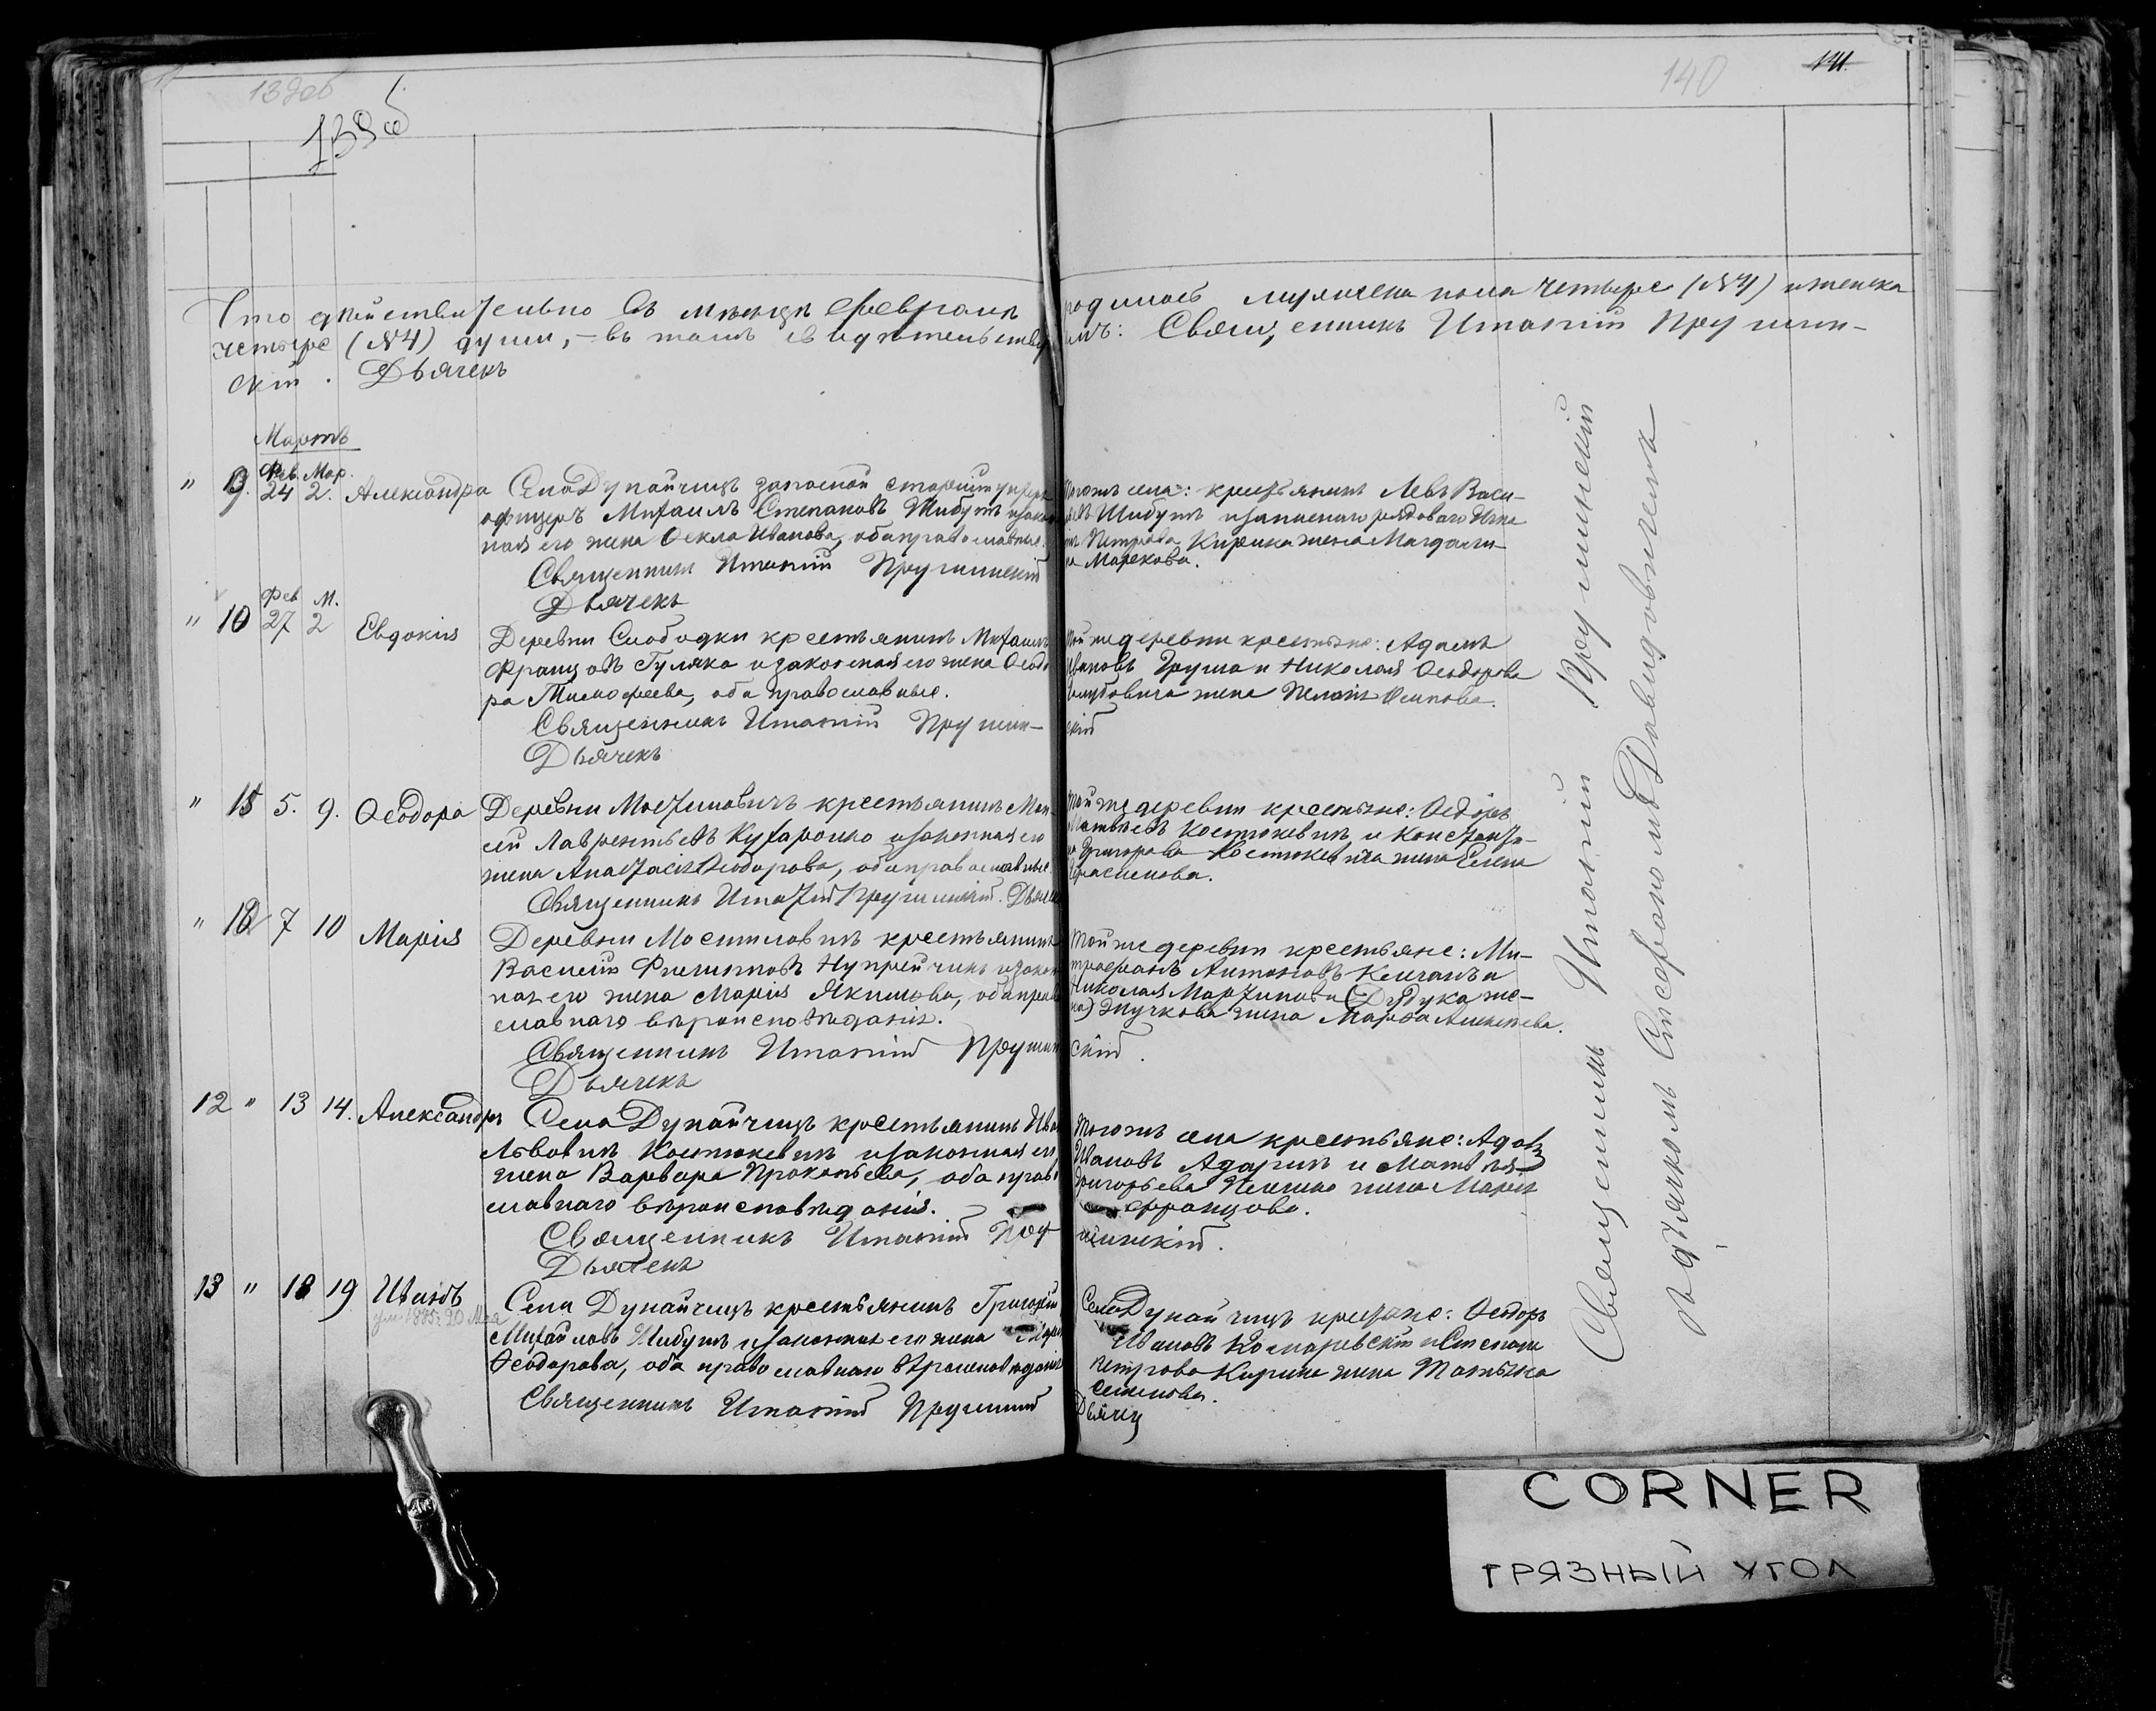 139об
139об
140
141.
Что действительно въ мѣсяцѣ Февралѣ родилось мужеска пола четыре (№4) и женска
четыре (№4) души, – въ томъ свидѣтельствуемъ: Священникъ Ипатій Прушин-
скій. Дьячекъ
Мартъ
Фев. Мар.
" 9. 24 2. Александра
Села Дунайчицъ запасной старшій унтеръ
офицеръ Михаилъ Степановъ Шибутъ и закон
ная его жена Ѳекла Иванова, оба православные.
Священникъ Ипатій Прушинскій
Дьячекъ
тогожъ села: крестьянинъ Левъ Васи-
Шибутъ и запаснаго рядоваго
Петрова Кирика жена Магдали-
на Марекова.
Фев М.
" 10 27 2 Евдокія
Деревни Слободки крестьянинъ Михаилъ
Францовъ Гуляко и законная его жена Ѳеодо
ра Тимофеева, оба православные.
Священникъ Ипатій Прушин-
Дьячекъ
той же деревни крестьяне: Адамъ
Ивановъ и Николая Ѳеодорова
жена Пелагія Осипова.
скій
" 15 5. 9. Ѳеодора
Деревни Мостиловичъ крестьянинъ Мои-
сей Лаврентьевъ Кухаронко и законная его
жена Анастасія Ѳеодорова, оба православные.
Священникъ Ипатій Прушинскій. Дьячекъ
той же деревни крестьяне: Ѳеодоръ
Матвѣевъ Костюкевичъ и Константи-
на Григорова Костюкевича жена Елена
Герасимова.
" 7 10 Марія
Деревни Мостиловичъ крестьянинъ
Василій Филипповъ Нупрейчикъ и закон
ная его жена Марія Якимова, оба право
славнаго вѣроисповѣданія.
Священникъ Ипатій Прушин
Дьячекъ
той же деревни крестьяне: Ми-
трофанъ Антоновъ Клачанъ и
Николая Мартинова (Дудука же-
на) Жучкова жена Марѳа Алексѣева.
скій.
12 " 13 14. Александръ
Села Дунайчицъ крестьянинъ Иванъ
Львовичъ Костюкевичъ и законная его
жена Варвара Прокопьева, оба право
славнаго вѣроисповѣданія.
Священникъ Ипатій Пру
Дьячекъ
тогожъ села крестьяне: Адамъ
Ивановъ Адарихъ и Матвѣя
Григорьева жена Марія
Францова.
шинскій.
13 " 18 19 Иванъ
ум. 1885. 20 Мая
Села Дунайчицъ крестьянинъ Григорій
Михайловъ Шибутъ и законная его жена
Ѳеодорова, оба православнаго вѣроисповѣданія
Священникъ Ипатій Прушинскій
Села Дунайчицъ крестьяне: Ѳеодоръ
Ивановъ Комаревскій и Степана
Петрова Кирика жена Татьяна
Семенова.
Дьячекъ
Священникъ Ипатій Прушинскій
съ дьячкомъ Стефаномъ Давидовичемъ
CORNER
ГРЯЗНЫЙ УГОЛ